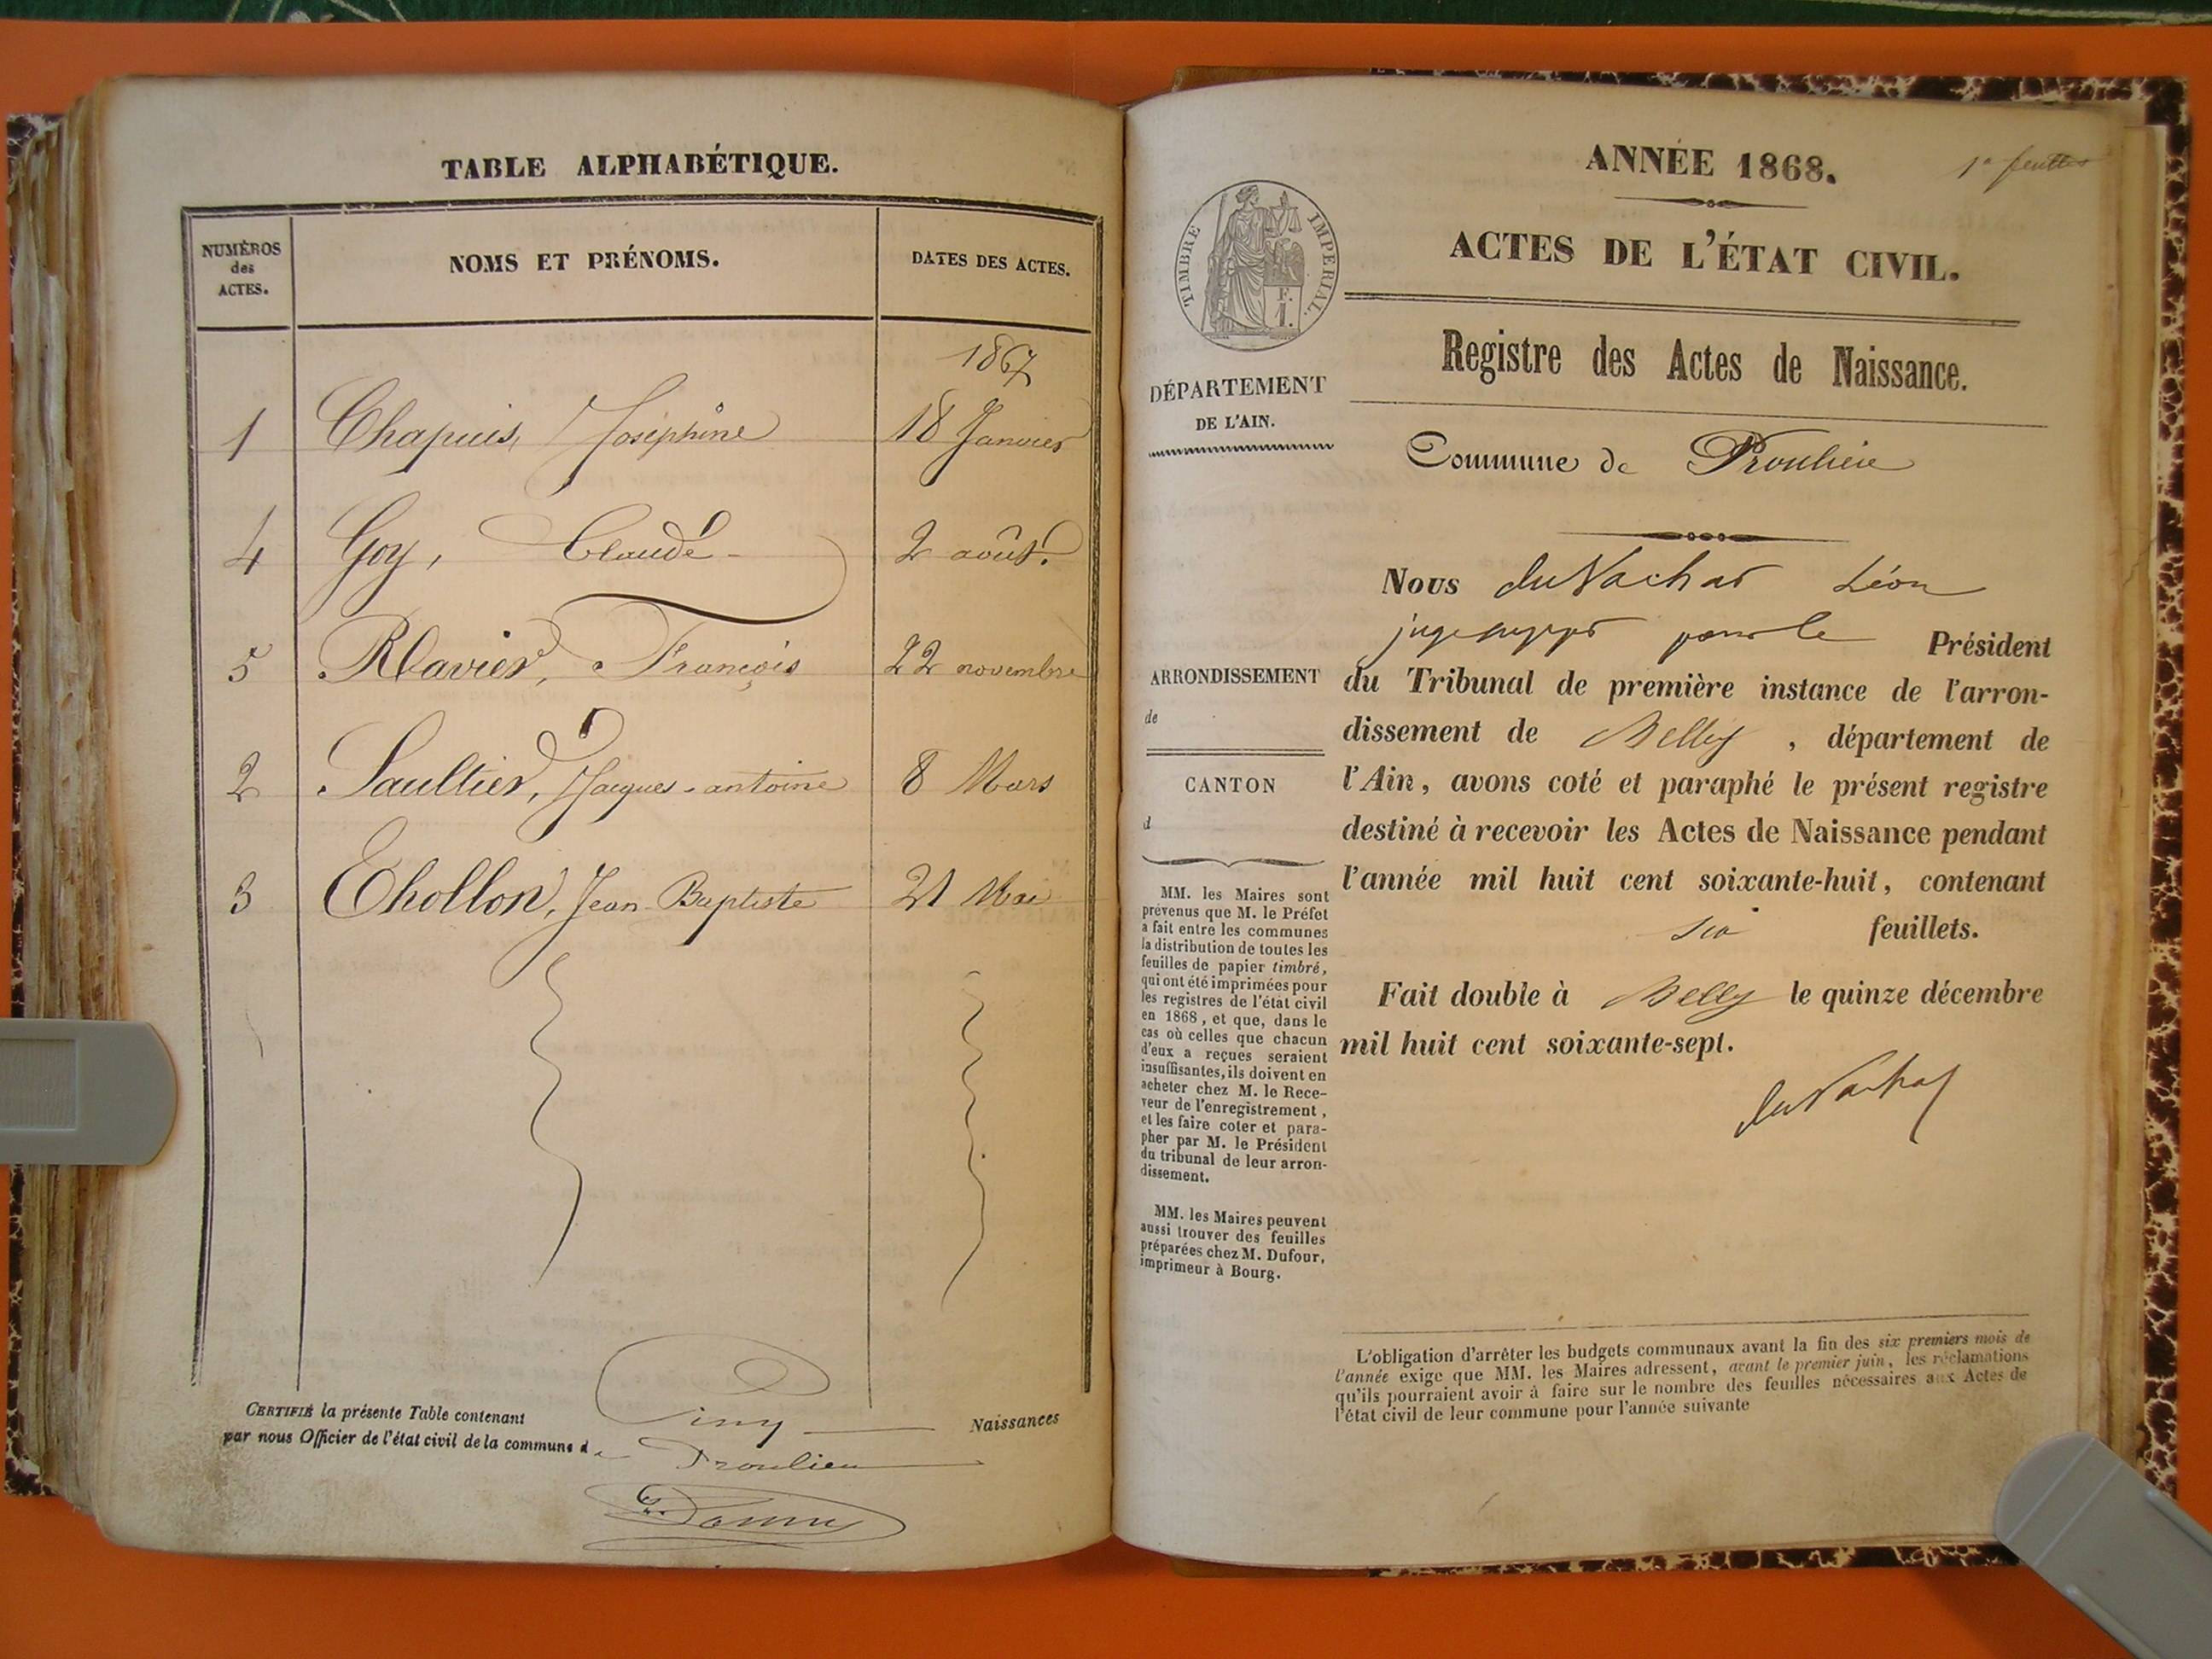 TABLE ALPHABÉTIQUE.
NUMÉROS des ACTES.
NOMS ET PRÉNOMS.
DATES DES ACTES.
1867
1 Chapuis, Joséphine 18 Janvier
4 Goy, Claude 2 août.
5 Ravier, François 22 novembre
2 Saultier, Jacques-antoine 8 Mars
3 Chollon, Jean Baptiste 21 Mai
CERTIFIÉ la présente Table contenant Cinq Naissances
par nous Officier de l'état civil de la commune de Proulieu
ANNÉE 1868.
1er feuillet
TIMBRE IMPERIAL.
F.
1.
ACTES DE L'ÉTAT CIVIL.
Registre des Actes de Naissance.
DÉPARTEMENT
DE L'AIN.
Commune de Proulieu
Nous du Nachat Léon
juge suppt pour le Président
du Tribunal de première instance de l'arron-
dissement de Belley, département de
l'Ain, avons coté et paraphé le présent registre
destiné à recevoir les Actes de Naissance pendant
l'année mil huit cent soixante-huit, contenant
six feuillets.
Fait double à Belley le quinze décembre
mil huit cent soixante-sept.
ARRONDISSEMENT
de
CANTON
d
MM. les Maires sont
prévenus que M. le Préfet
a fait entre les communes
la distribution de toutes les
feuilles de papier timbré,
qui ont été imprimées pour
les registres de l'état civil
en 1868, et que, dans le
cas où celles que chacun
d'eux a reçues seraient
insuffisantes, ils doivent en
acheter chez M. le Rece-
veur de l'enregistrement,
et les faire coter et para-
pher par M. le Président
du tribunal de leur arron-
dissement.
MM. les Maires peuvent
aussi trouver des feuilles
préparées chez M. Dufour,
imprimeur à Bourg.
L'obligation d'arrêter les budgets communaux avant la fin des six premiers mois de
l'année exige que MM. les Maires adressent, avant le premier juin, les réclamations
qu'ils pourraient avoir à faire sur le nombre des feuilles nécessaires aux Actes de
l'état civil de leur commune pour l'année suivante